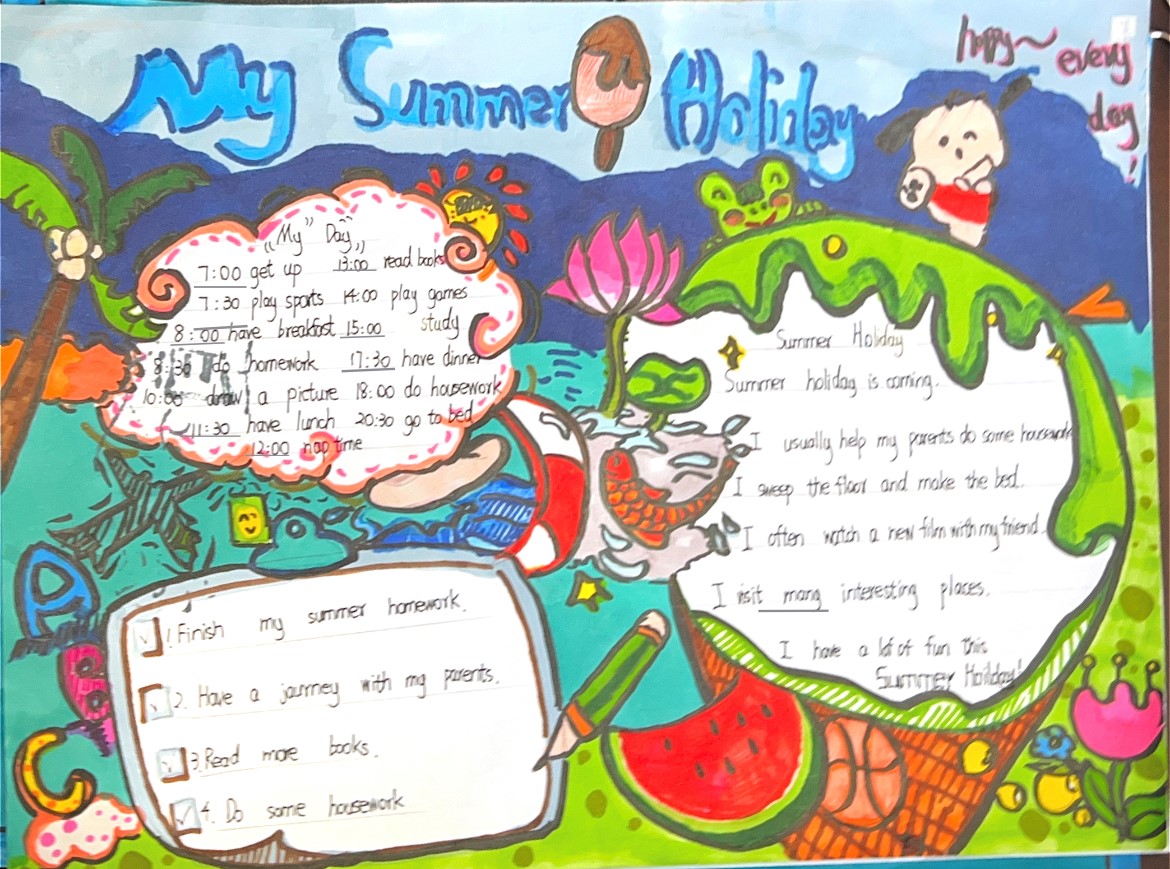 My Summer Holiday
happy~ every
day!
"My" Day"
7:00 get up 13:00 read books
7:30 play sports 14:00 play games
8:00 have breakfast 15:00 study
8:30 do homework 17:30 have dinner
10:00 draw a picture 18:00 do housework
11:30 have lunch 20:30 go to bed
12:00 nap time
Summer Holiday
Summer holiday is coming.
I usually help my parents do some housework
I sweep the floor and make the bed.
I often watch a new film with my friend.
I visit many interesting places.
I have a lot of fun this
Summer Holiday!
A
B
C
1. Finish my summer homework.
2. Have a journey with my parents.
3. Read more books.
4. Do some housework